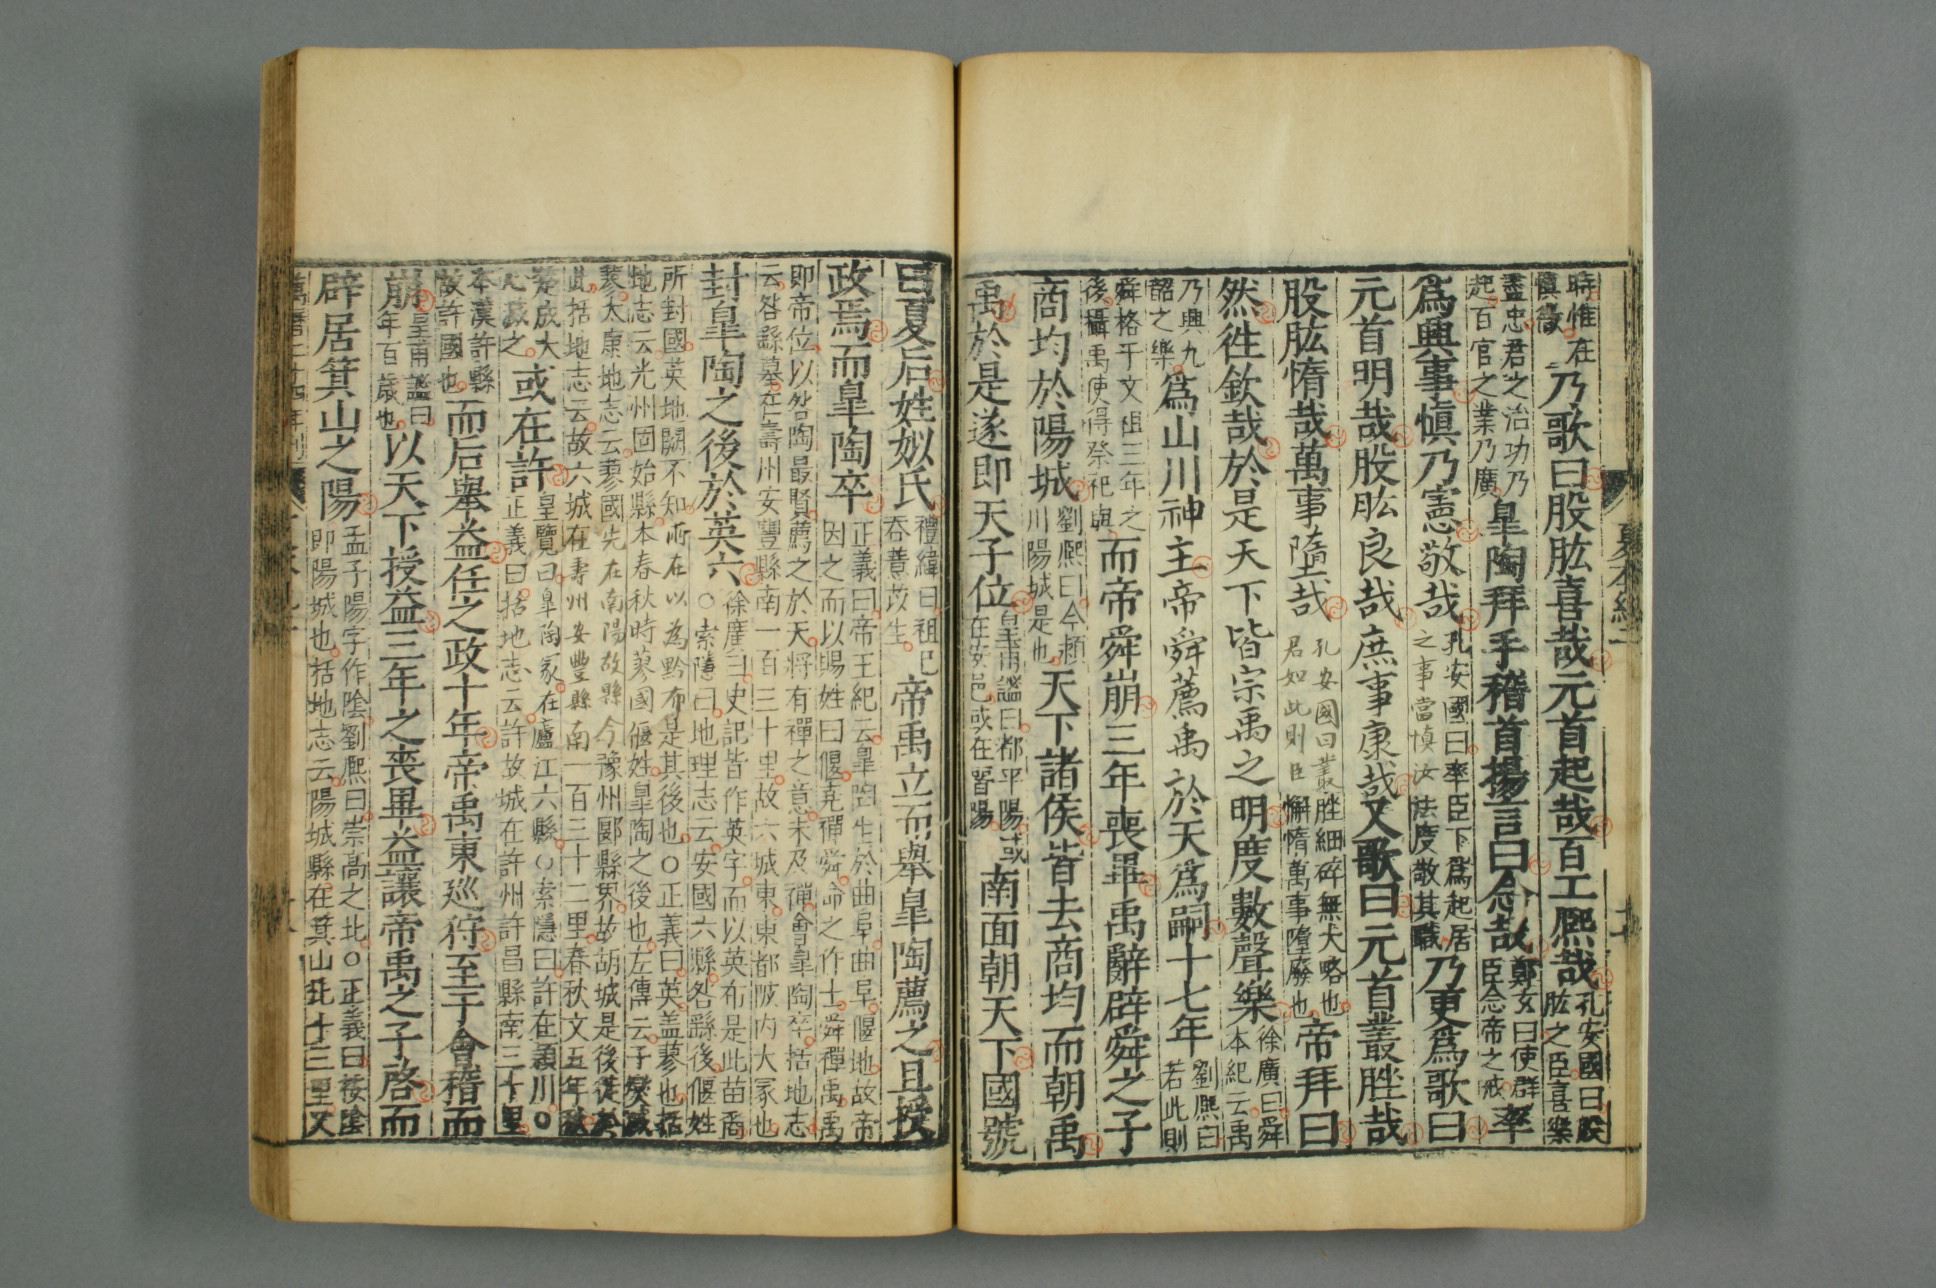 夏本紀二
時惟在慎微乃歌曰股肱喜哉元首起哉百工熙哉孔安國曰股肱之臣喜樂
盡忠君之治功乃起百官之業乃廣皐陶拜手稽首揚言曰念哉鄭玄曰使群臣念帝之戒率
爲興事慎乃憲敬哉孔安國曰率臣下爲起居之事當慎汝法度敬其職乃更爲歌曰
元首明哉股肱良哉庶事康哉又歌曰元首叢脞哉
股肱惰哉萬事墮哉孔安國曰叢脞細碎無大略也君如此則臣懈惰萬事墮廢也帝拜曰
然徃欽哉於是天下皆宗禹之明度數聲樂徐廣曰舜本紀云禹
乃興九韶之樂爲山川神主帝舜薦禹於天爲嗣十七年劉熙曰若此則
舜格于文祖三年之後攝禹使得祭祀與而帝舜崩三年喪畢禹辭辟舜之子
商均於陽城劉熙曰今潁川陽城是也天下諸侯皆去商均而朝禹
禹於是遂即天子位皇甫謐曰都平陽或在安邑或在晉陽南面朝天下國號
曰夏后姓姒氏禮緯曰祖巳吞薏苡生帝禹立而舉皐陶薦之且授
政焉而皐陶卒正義曰帝王紀云皐陶生於曲阜曲阜偃地故帝因之而以賜姓曰偃堯禪舜命之作士舜禪禹禹
即帝位以咎陶最賢薦之於天將有禪之意未及禪會皐陶卒括地志云咎繇墓在壽州安豐縣南一百三十里故六城東東都陂内大冢也
封皐陶之後於英六徐廣曰史記皆作英字而以英布是此苗裔○索隱曰地理志云安國六縣咎繇後偃姓
所封國英地闕不知所在以為黔布是其後也○正義曰英盖蓼也括地志云光州固始縣本春秋時蓼國偃姓皐陶之後也左傳云子燮滅
蓼太康地志云蓼國先在南陽故縣今豫州郾縣界故胡城是後徙於此括地志云故六城在壽州安豐縣南一百三十二里春秋文五年秋
楚成大心滅之或在許皇覽曰皐陶冢在廬江六縣○索隱曰許在潁川○正義曰括地志云許故城在許州許昌縣南三十里
本漢許縣故許國也而后舉益任之政十年帝禹東廵狩至于會稽而
崩皇甫謐曰年百歲也以天下授益三年之喪畢益讓帝禹之子啓而
辟居箕山之陽孟子陽字作陰劉熙曰崇高之北○正義曰按陰即陽城也括地志云陽城縣在箕山北十三里又
萬曆二十四年刊